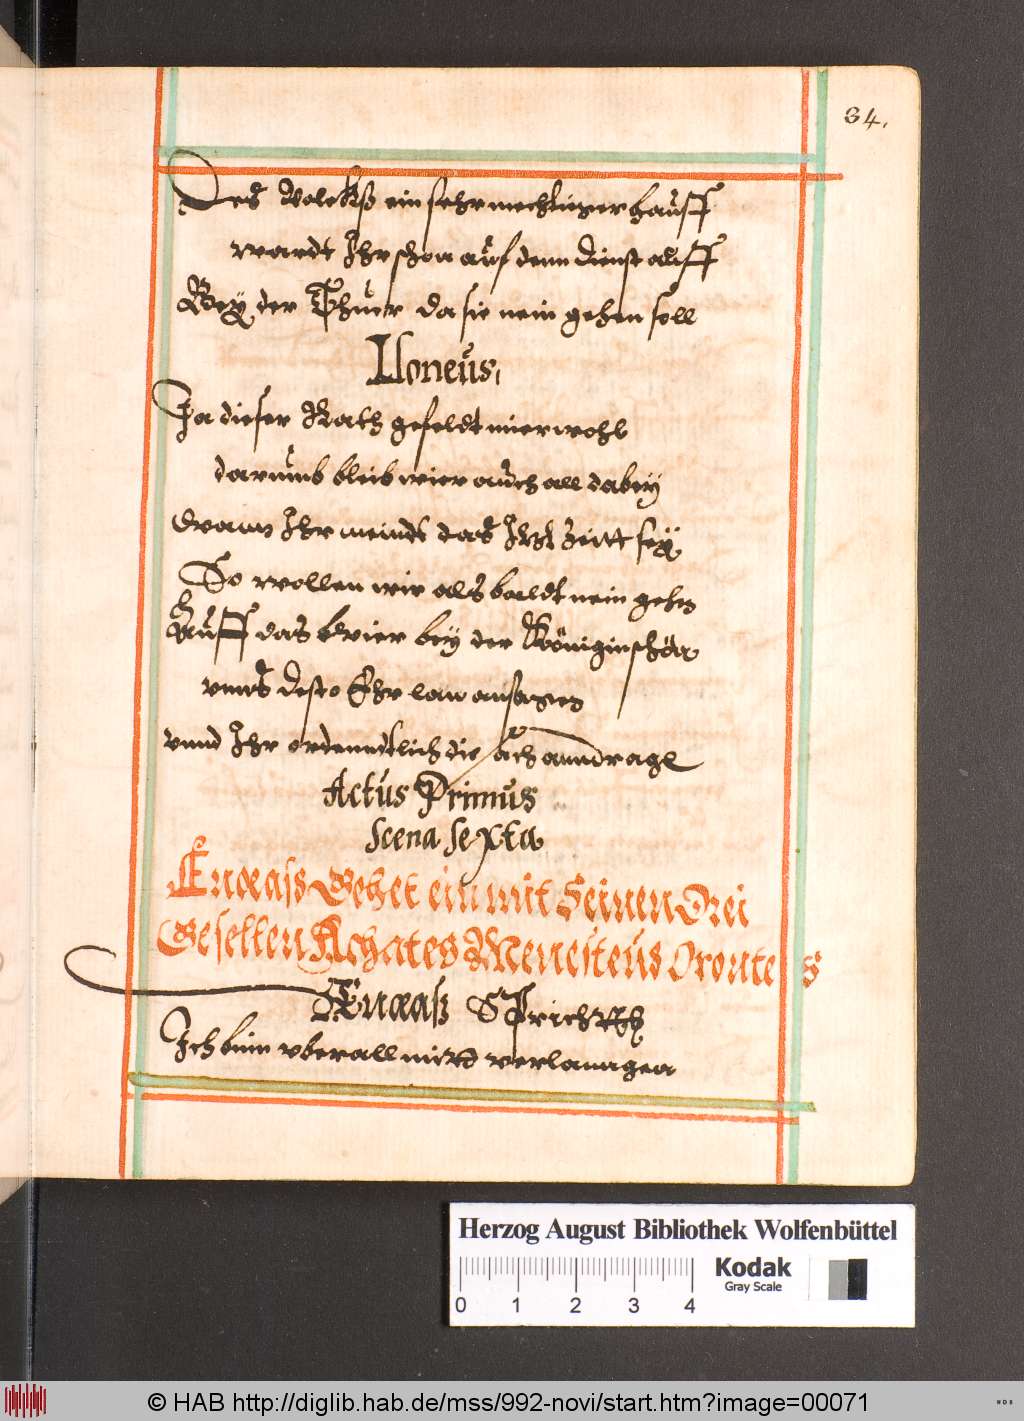 34.
Des Volckß ein sehr mechtiger hauff
wardt Ihr schon auf denn dienst auff
Bey der Thuer da sie nein gehen soll
Ilioneus,
Ja dieser Rath gefeldt mier wohl
darumb bleib wier auch all dabey
Wann Ihr meindt das Itzt Zeitt sey
So wollen wir als baldt nein gehn
Auff das wier bey der Königin schön
unns desto Ehr lan ansagen
unnd Ihr ordenntlich die sach anndragen
Actus Primus
Scena Sexta
Eneass Gehet ein mit Seinen Drei
Gesellen Achates Menesteus Orontes
Eneaß Sprichtt
Ich binn vberall mitt verlanngen
Herzog August Bibliothek Wolfenbüttel
Kodak
Gray Scale
0 1 2 3 4
© HAB http://diglib.hab.de/mss/992-novi/start.htm?image=00071